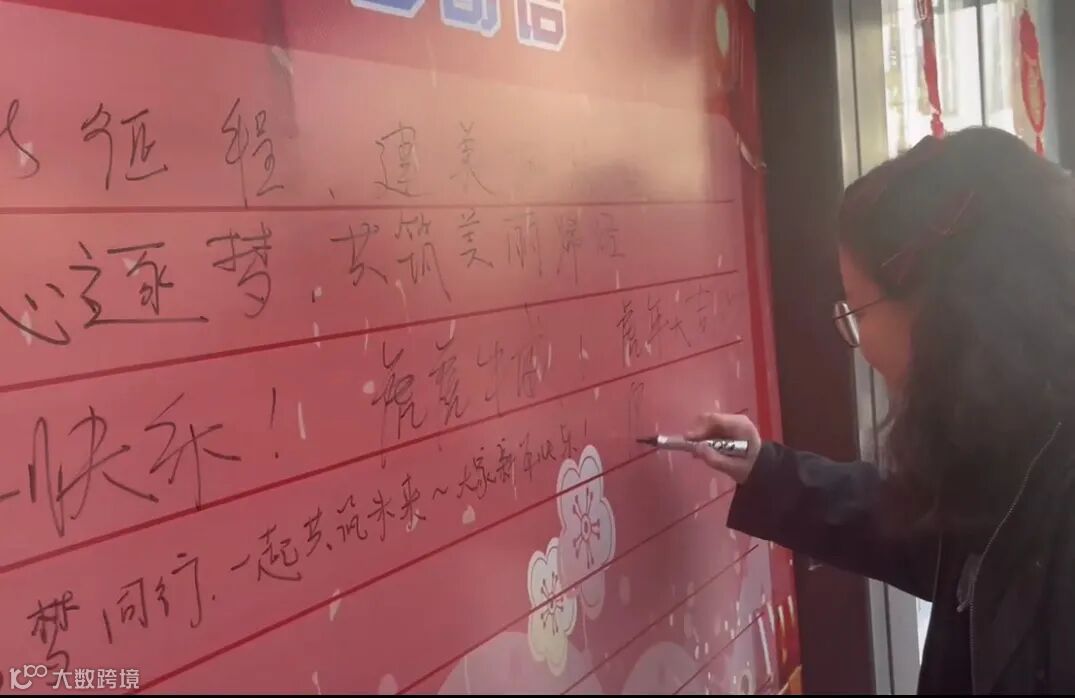 征程、建美
心逐梦,共筑美丽
快乐! 虎虎生威! 虎年大吉
梦同行,一起共筑未来~大家新年快乐!
大数跨境